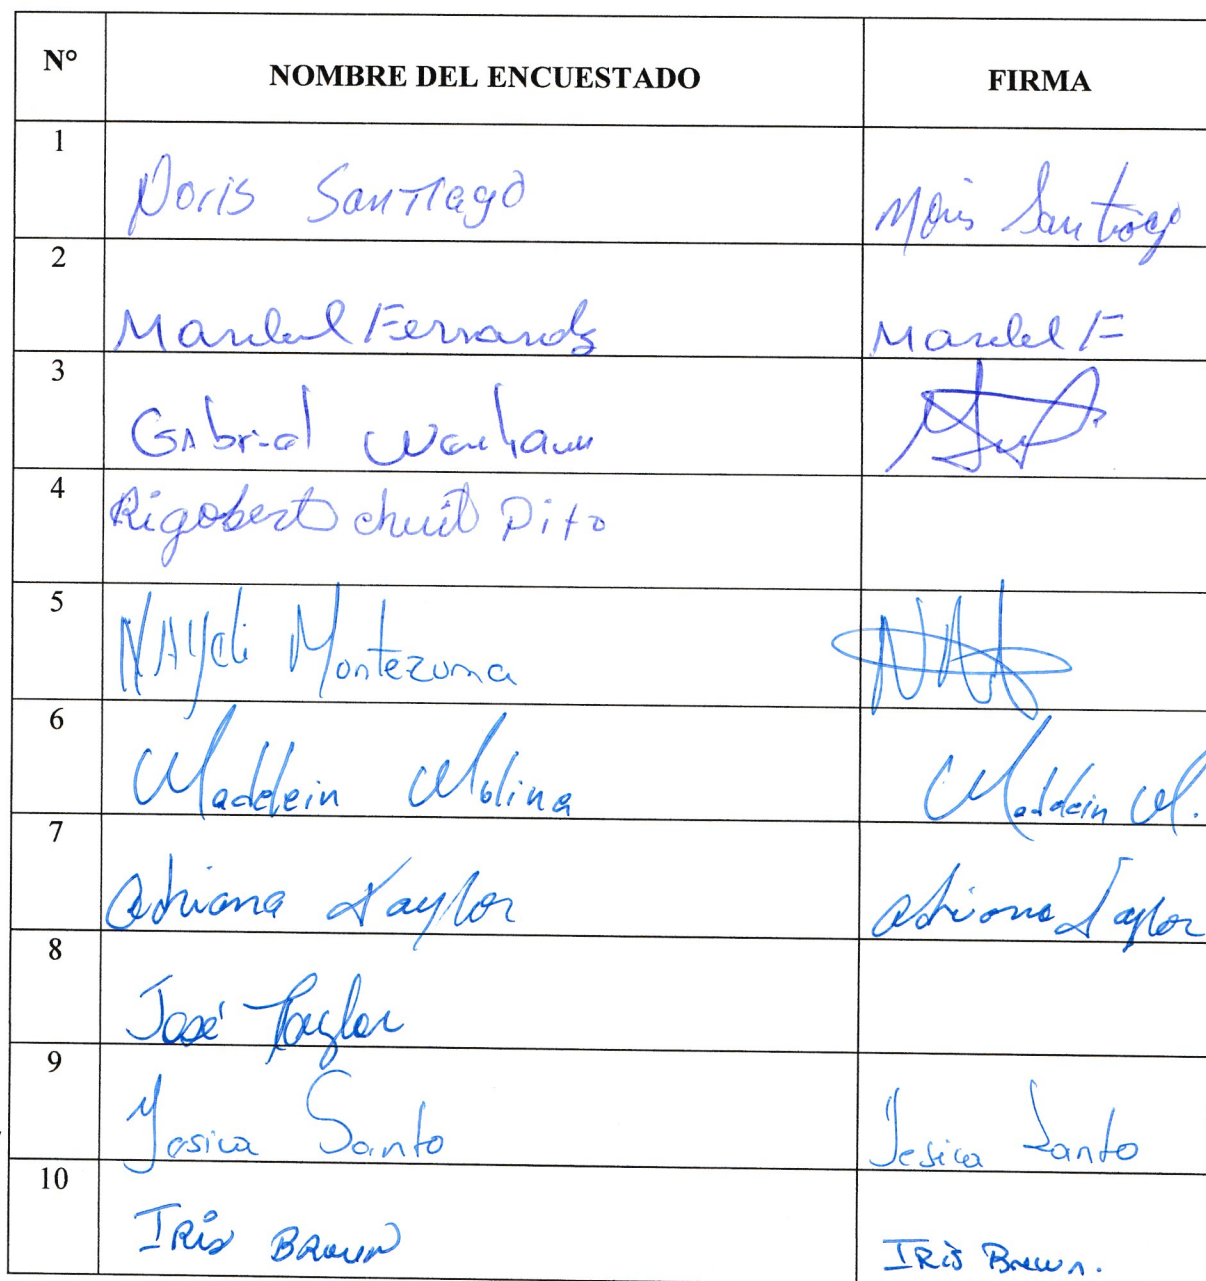 N° NOMBRE DEL ENCUESTADO FIRMA
1 Doris Santiago Santiago
2 Maribel Fernandz Maribel F
3 Gabriel
4 Rigobert Pito
5 NAYeli Montezuma
6 Maddelein Molina Maddein M.
7 Adriana Taylor Adriana Taylor
8 José Taylor
9 Yesica Santo Yesica Santo
10 IRis BROWN IRis Brown.